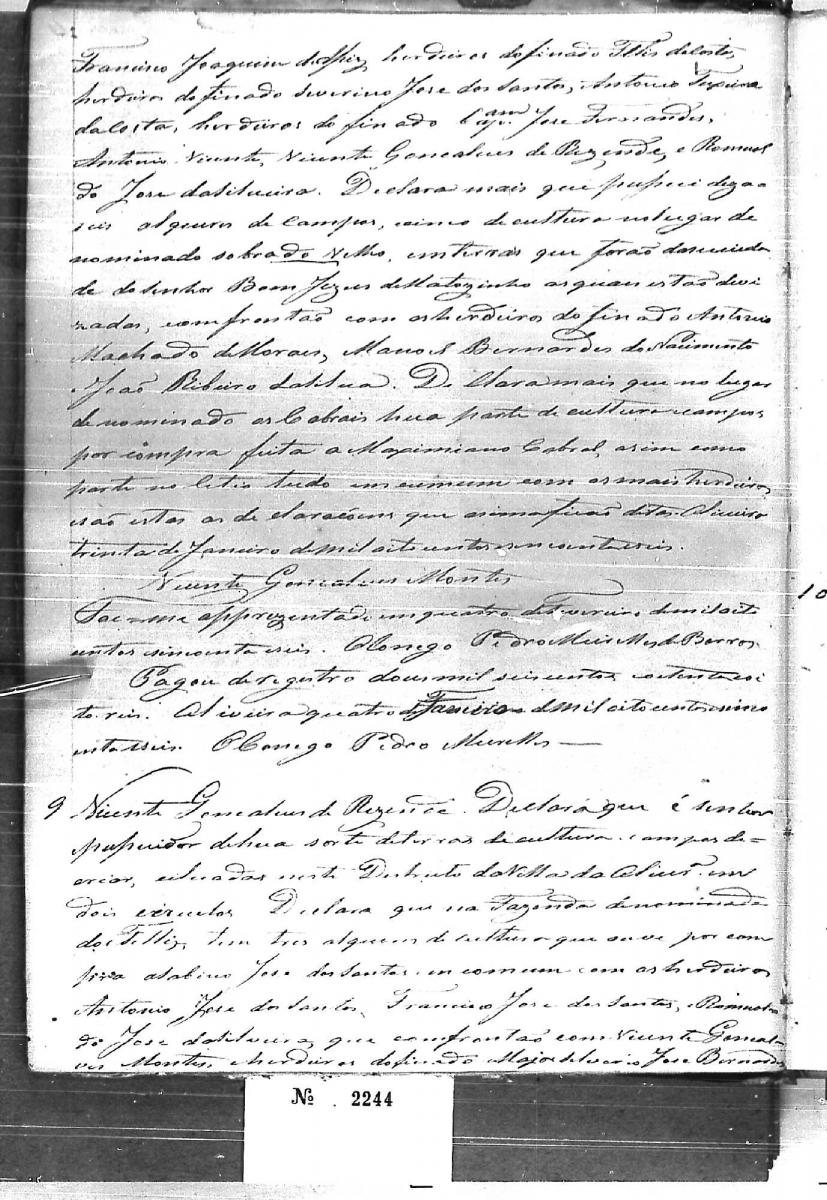 Francisco Joaquim herdeiros do finado da Costa,
herdeiros do finado Severino Jose dos Santos, Antonio Texeira
da Costa, herdeiros do finado Cap.am Jose Fernandes,
Antonio Vicente, Vicente Goncalves de Rezende, e Romual
do Jose da Silveira. Declara mais que pussui deza=
seis alqueres de Campos, cinco de cultura no lugar de
nominado sobrado Velho, em terras que forão da
de do Senhor Bom Jezus de Matozinho as quais estão devi
zadas, comfrontão com os herdeiros do finado Antonio
Machado de Moraes, Manoel Bernardes do Nacimento
João Ribeiro da Silva. De Clara mais que no lugar
denominado os Cabrais hua parte de cultura e campos,
por compra feita a Maximiano Cabral, asim como
parte no tudo em cumum com os mais herdeiros,
e são estas as de claracoens que asima ficão ditas. Oliveira
trinta de Janeiro de mil oito centos sincoenta e seis.
Vicente Goncalves Montes
Foe=me apprezentado em quatro de Fevereiro de mil oito
centos sincoenta e seis. O Conego Pedro Meirelles de Barros
Pagou de registro dous mil seis centos e oitenta e oi
to reis. Oliveira quatro de Fevereiro de Mil oito centos sinco
enta e seis O Conego Pedro Meirelles —
9 Vicente Goncalves de Rezende. Declara que é senhor
e pussuidor de hua sorte de terras de cultura e campos de=
criar, cituadas neste Destricto da Villa da Olivr.a em
dois Declara que na Fazenda denominada
do tem tres alqueres de cultura que ouve por com
pra a Sabino Jose dos Santos em comum com os herdeiros
Antonio Jose dos Santos, Francisco Jose dos Santos, e Romual
do Jose da Silveira, que comfrontão com Vicente Goncal=
ves Montes, e herdeiros do finado Major Jose Bernardes
10
No 2244